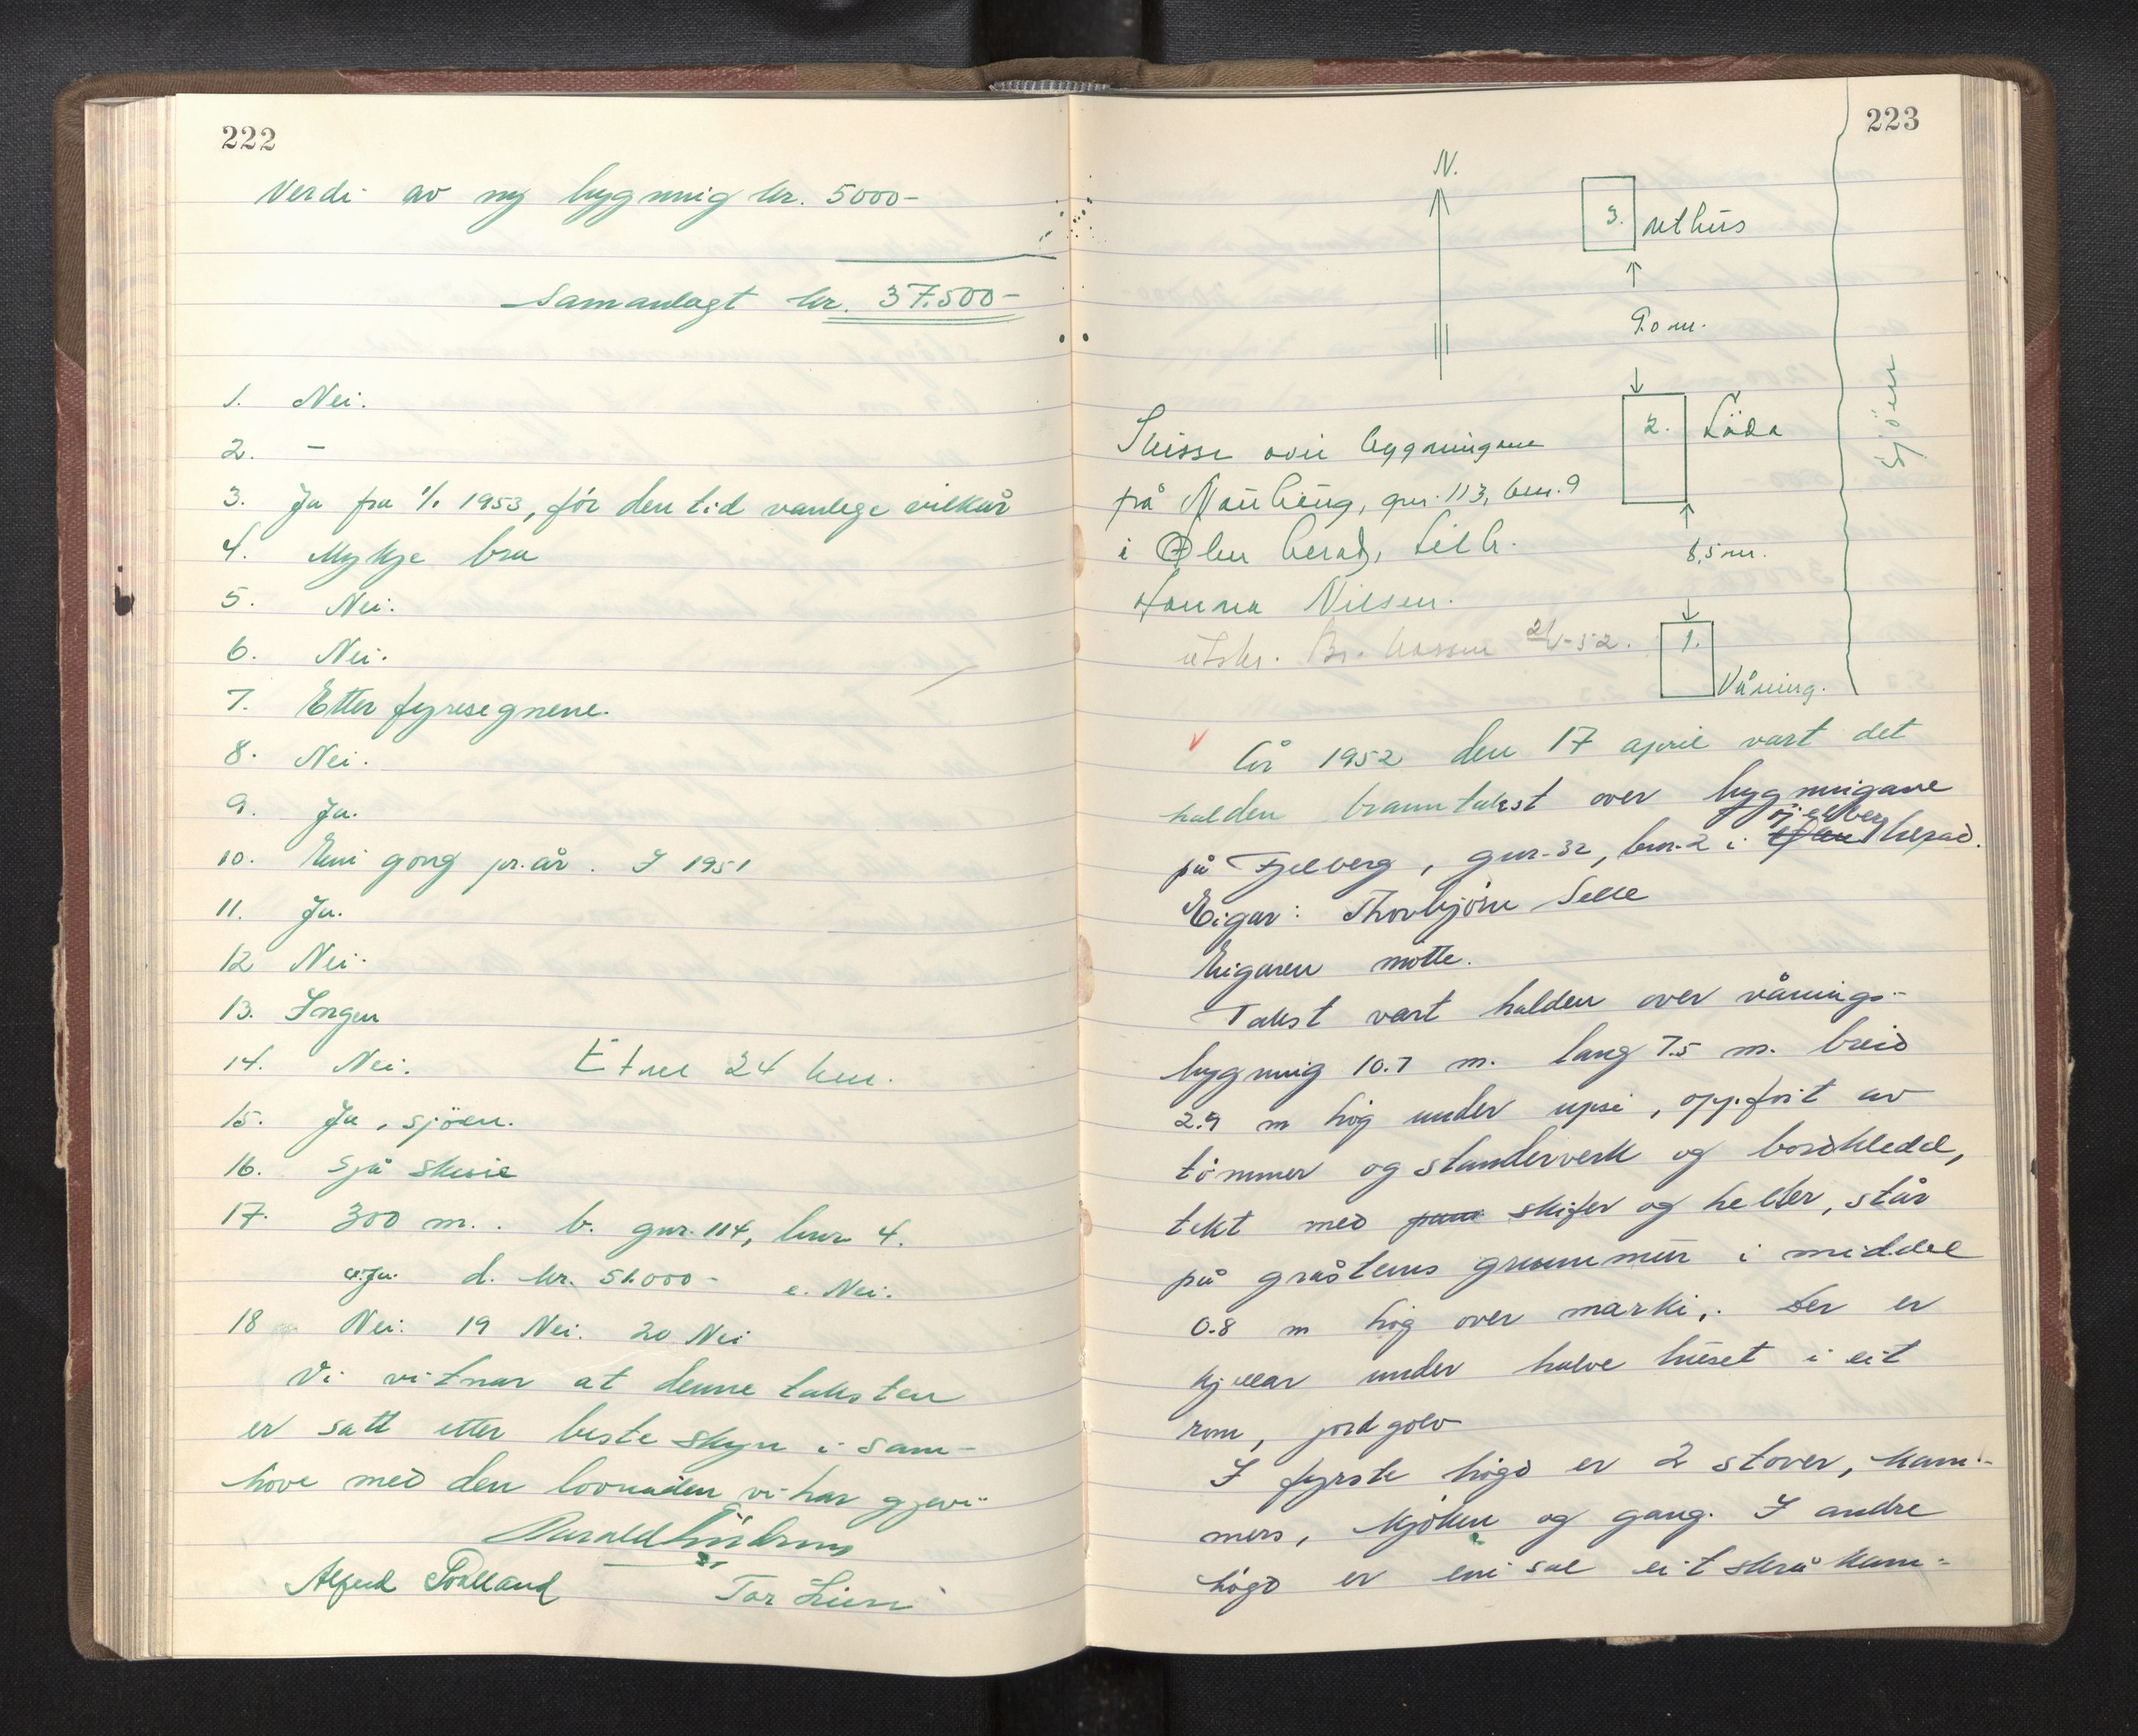 222
Verdi av ny bygning kr. 5000-
Samanlagt kr. 37.500-
1. Nei.
2. -
3. Ja fra 1/1 1953, för den tid vanlege vilkår
4. Mykje bra
5. Nei.
6. Nei.
7. Etter fyresegnene.
8. Nei.
9. Ja.
10. Ein gong pr. år. I 1951
11. Ja.
12 Nei.
13. Ingen
14. Nei. Etne 24 km.
15. Ja, sjöen.
16. Sjå skisse
17. 300 m. b. gnr. 114, bnr 4.
d. kr. 51.000- e. Nei.
18 Nei. 19 Nei. 20 Nei
Vi vitnar at denne taksten
er satt etter beste skyn i sam-
høve med den lovnaden vi har gjeve
Alfred
Tor Lien
223
N.
3. uthus
9.0 m.
2. Löda
Sjöen
8,5 m.
1. Våning.
Skisse over bygningane
på gnr. 113, bnr. 9
i Ølen herad, tilh.
Hanna Nilsen.
utskr. Br. kassen 21/-52.
År 1952 den 17 april vart det
halden branntakst over bygningane
på Fjelberg, gnr. 32, bnr. 2 i Fjelberg herad.
Eigar: Thorbjörn Selle
Eigaren møtte.
Takst vart halden over vånings-
bygning 10.7 m. lang 7.5 m. breid
2.9 m høg under upsi, oppført av
tømmer og standerverk og bordkledd,
tekt med skifer og heller, står
på gråsteins grunnmur i middel
0.8 m høg over marki,. Der er
kjellar under halve huset i eit
rom, jordgolv
I fyrste høgd er 2 stover, kam-
mers, kjøken og gang. I andre
høgd er ein sal eit skrå kam-